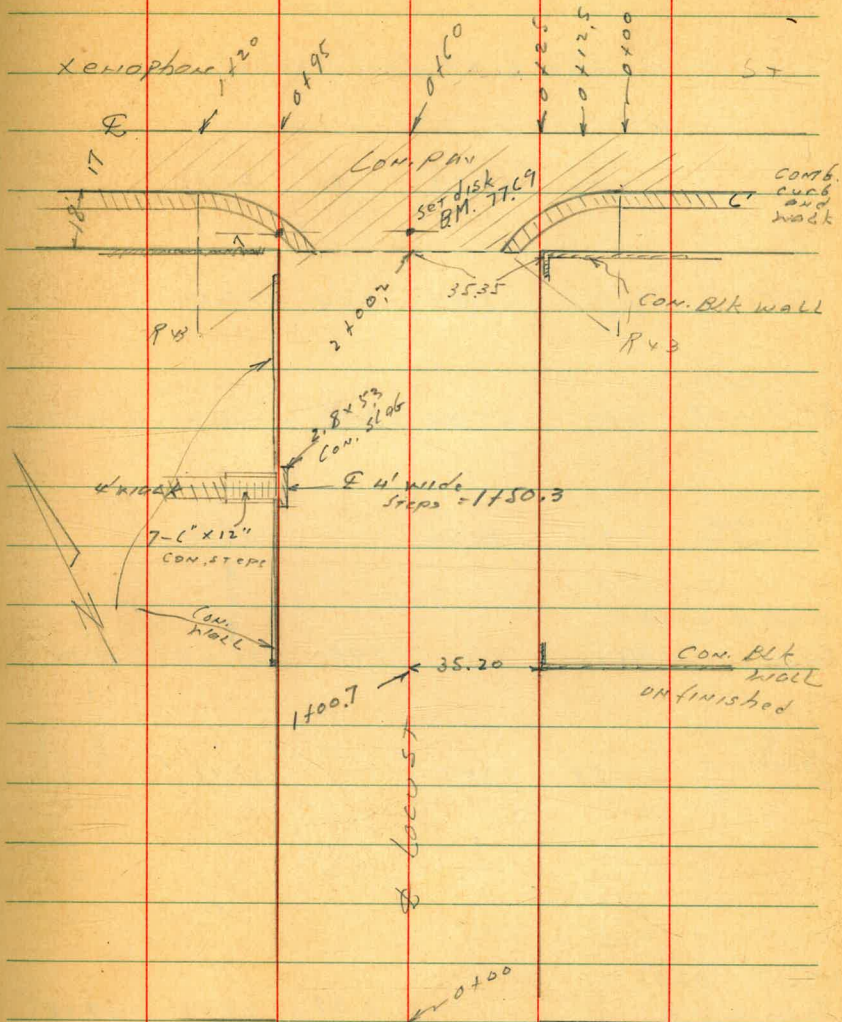 Xenophon ST
1+20
0+95
0+60
0+25
0+12.5
0+00
℄
17
18'
CON. PAV
set disk
BM. 77.69
COMB.
curb
and
walk
6'
7
35.35
2+00.2
CON. BLK WALL
R 43
R 43
2.8 x 5.3
CON. slab
4' walk
℄ 4' wide
steps = 1+50.3
7-6" x 12"
CON. STEPS
CON.
WALL
35.20
CON. BLK
WALL
unfinished
1+00.7
℄ LOCUST
0+00